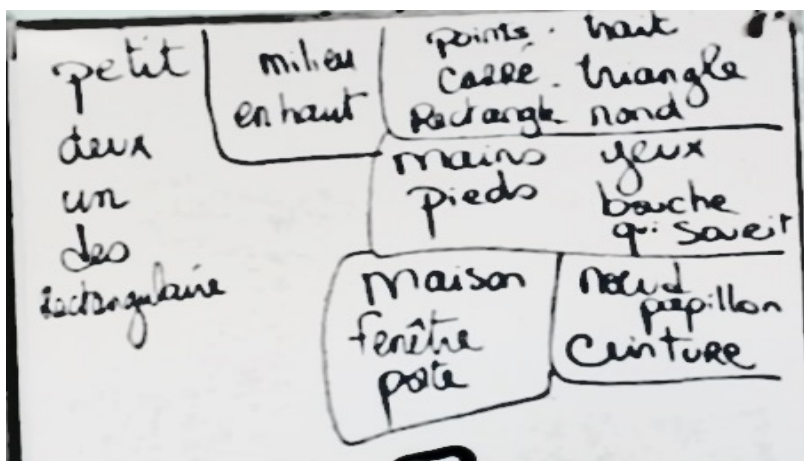 petit
deux
un
des
rectangulaire
milieu
en haut
points. trait
carré. triangle
Rectangle rond
mains yeux
pieds bouche
qui sourit
maison
fenêtre
porte
nœud
papillon
ceinture